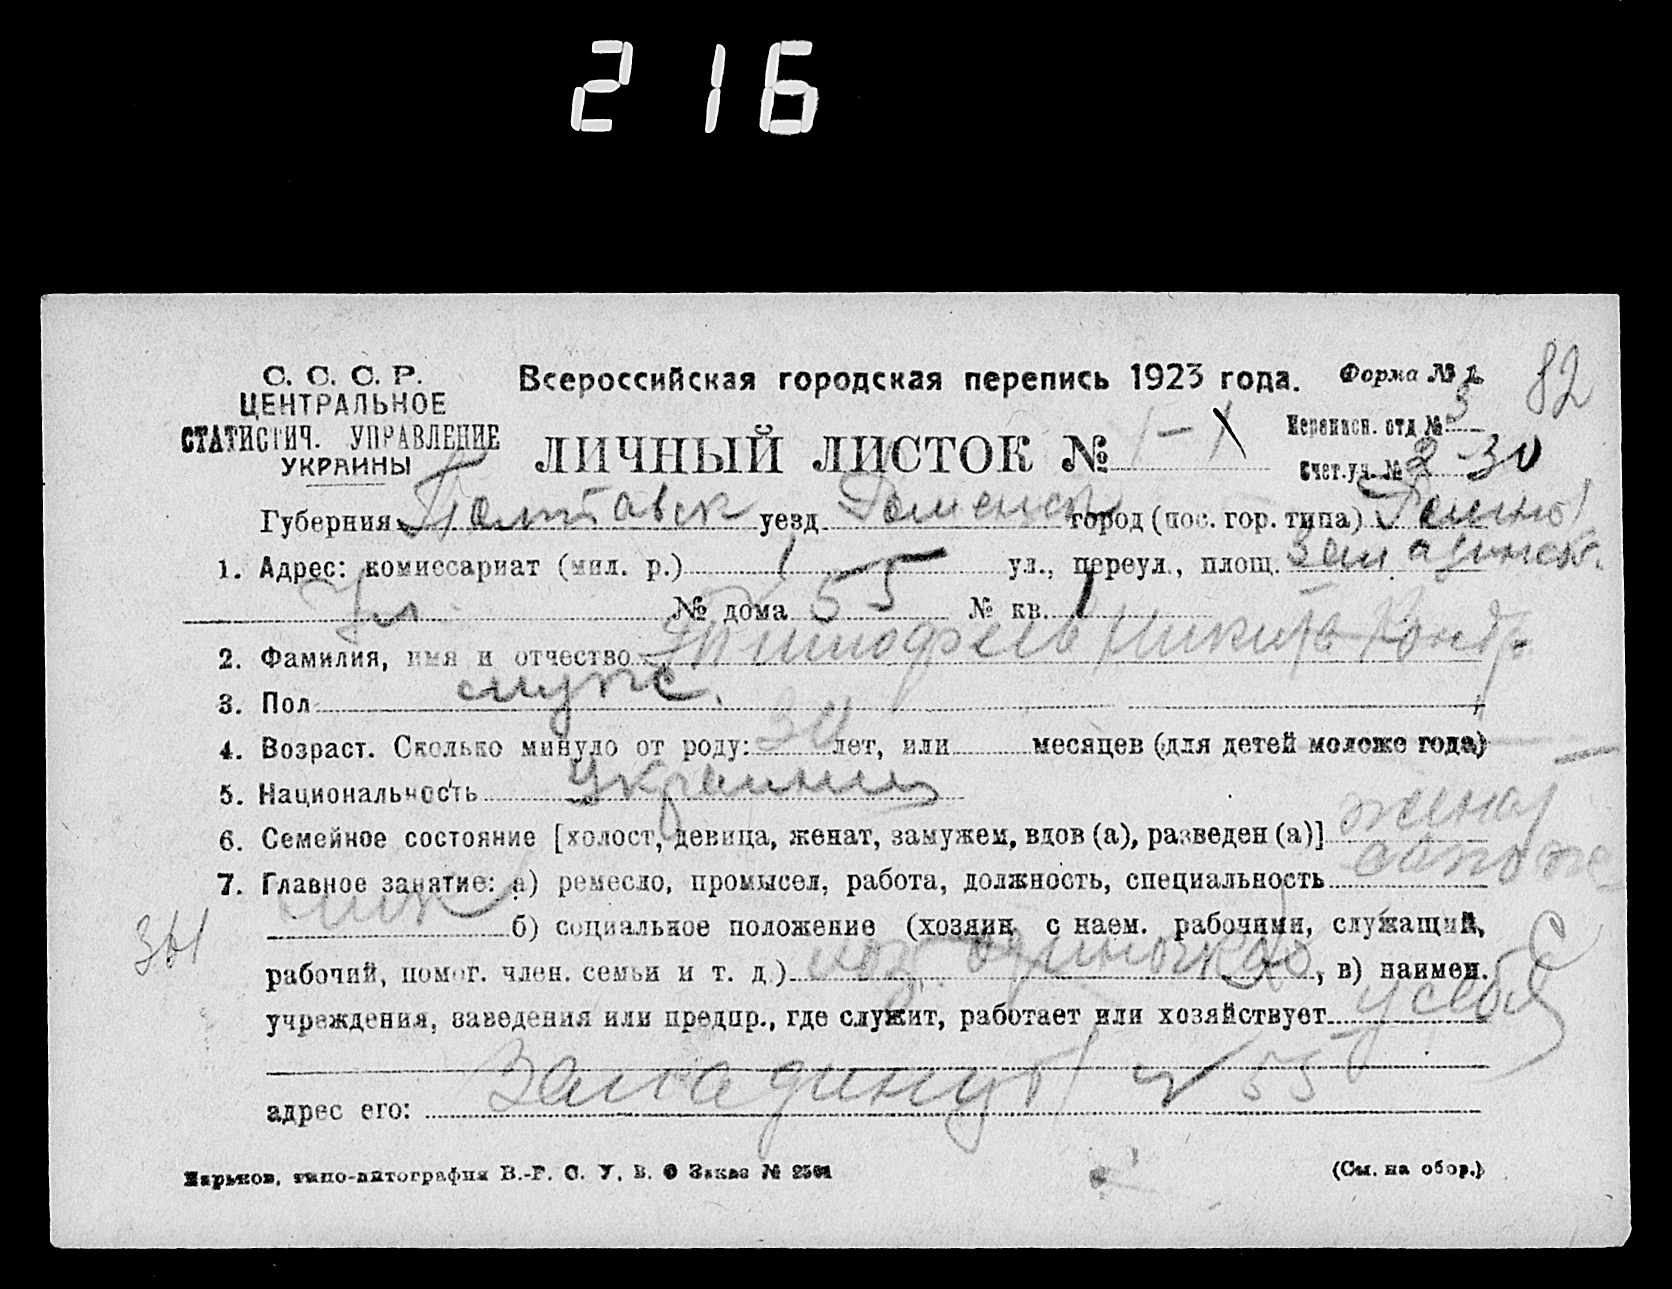 216
С. С. С. Р.
ЦЕНТРАЛЬНОЕ
СТАТИСТИЧ. УПРАВЛЕНИЕ
УКРАИНЫ
Всероссийская городская перепись 1923 года.
Форма № 1.
82
ЛИЧНЫЙ ЛИСТОК № 1-1
Переписн. отд № 3
Счет. уч. № 2-30
Губерния Полтавск уезд Роменск город (пос. гор. типа) Ромны
1. Адрес: комиссариат (мил. р.) 1 ул., переул., площ.
Ул. № дома 55 № кв. 1
2. Фамилия, имя и отчество Тимофеев Никита Кондр.
3. Пол муж.
4. Возраст. Сколько минуло от роду: 30 лет, или месяцев (для детей моложе года)
5. Национальность Украинец
6. Семейное состояние [холост, девица, женат, замужем, вдов (а), разведен (а)] женат
7. Главное занятие: а) ремесло, промысел, работа, должность, специальность сапож-
ник б) социальное положение (хозяин с наем. рабочими, служащий,
361
рабочий, помог. член. семьи и т. д.) хоз. одиночка, в) наимен.
учреждения, заведения или предпр., где служит, работает или хозяйствует у себя
адрес его: 55
Харьков, типо-литография В.-Р. С. У. В. О Заказ № 2561
(См. на обор.)